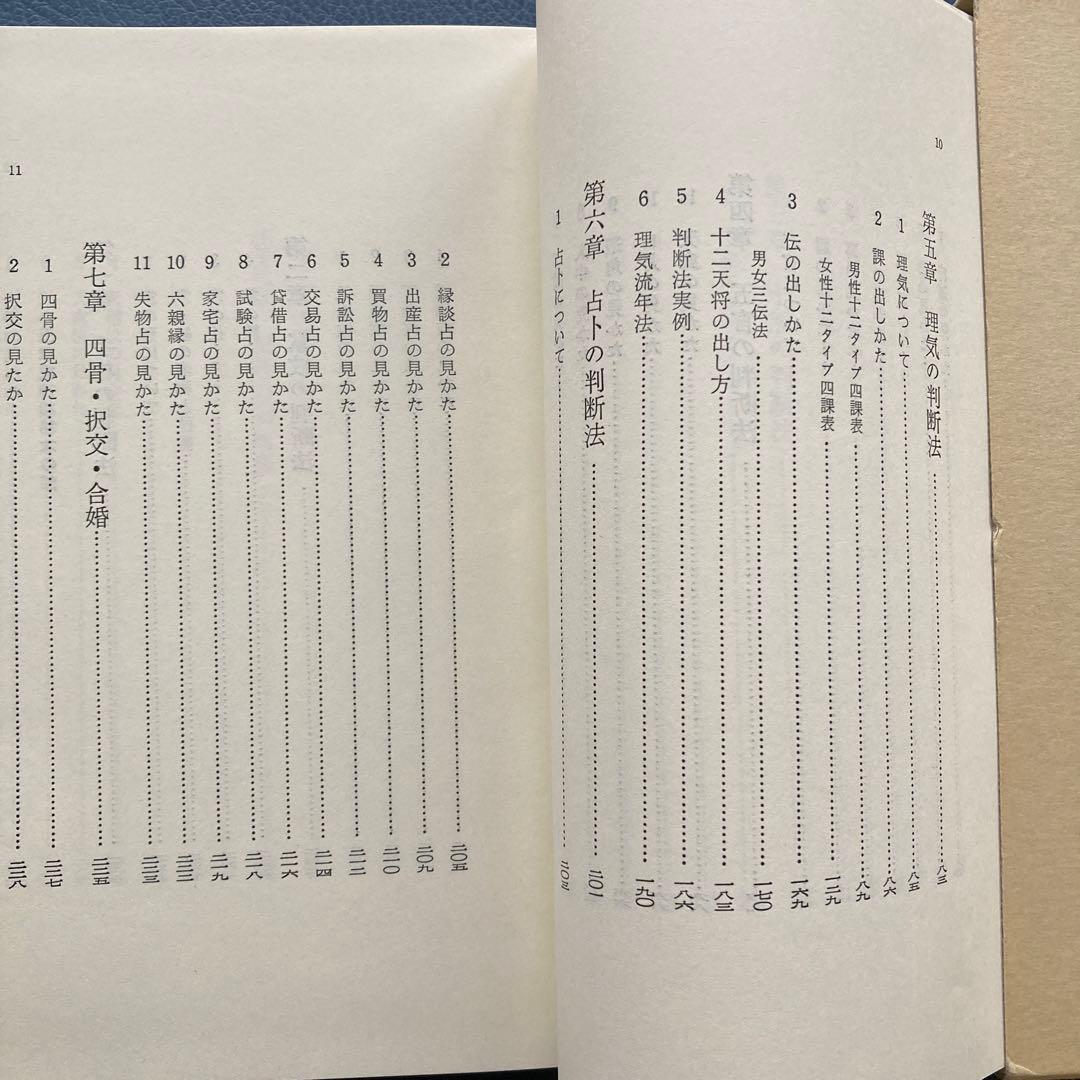 10
第五章 理気の判断法…八三
1 理気について…八五
2 課の出しかた…八六
男性十二タイプ四課表…八九
女性十二タイプ四課表…一二九
3 伝の出しかた…一六九
男女三伝法…一七〇
4 十二天将の出し方…一八三
5 判断法実例…一八六
6 理気流年法…一九〇
第六章 占卜の判断法…二〇一
1 占卜について
2 縁談占の見かた…二〇五
3 出産占の見かた…二〇九
4 買物占の見かた…二一〇
5 訴訟占の見かた…二一二
6 交易占の見かた…二一四
7 貸借占の見かた…二一六
8 試験占の見かた…二一八
9 家宅占の見かた…二一九
10 六親縁の見かた
11 失物占の見かた
第七章 四骨・択交・合婚
1 四骨の見かた
2 択交の見たか
11